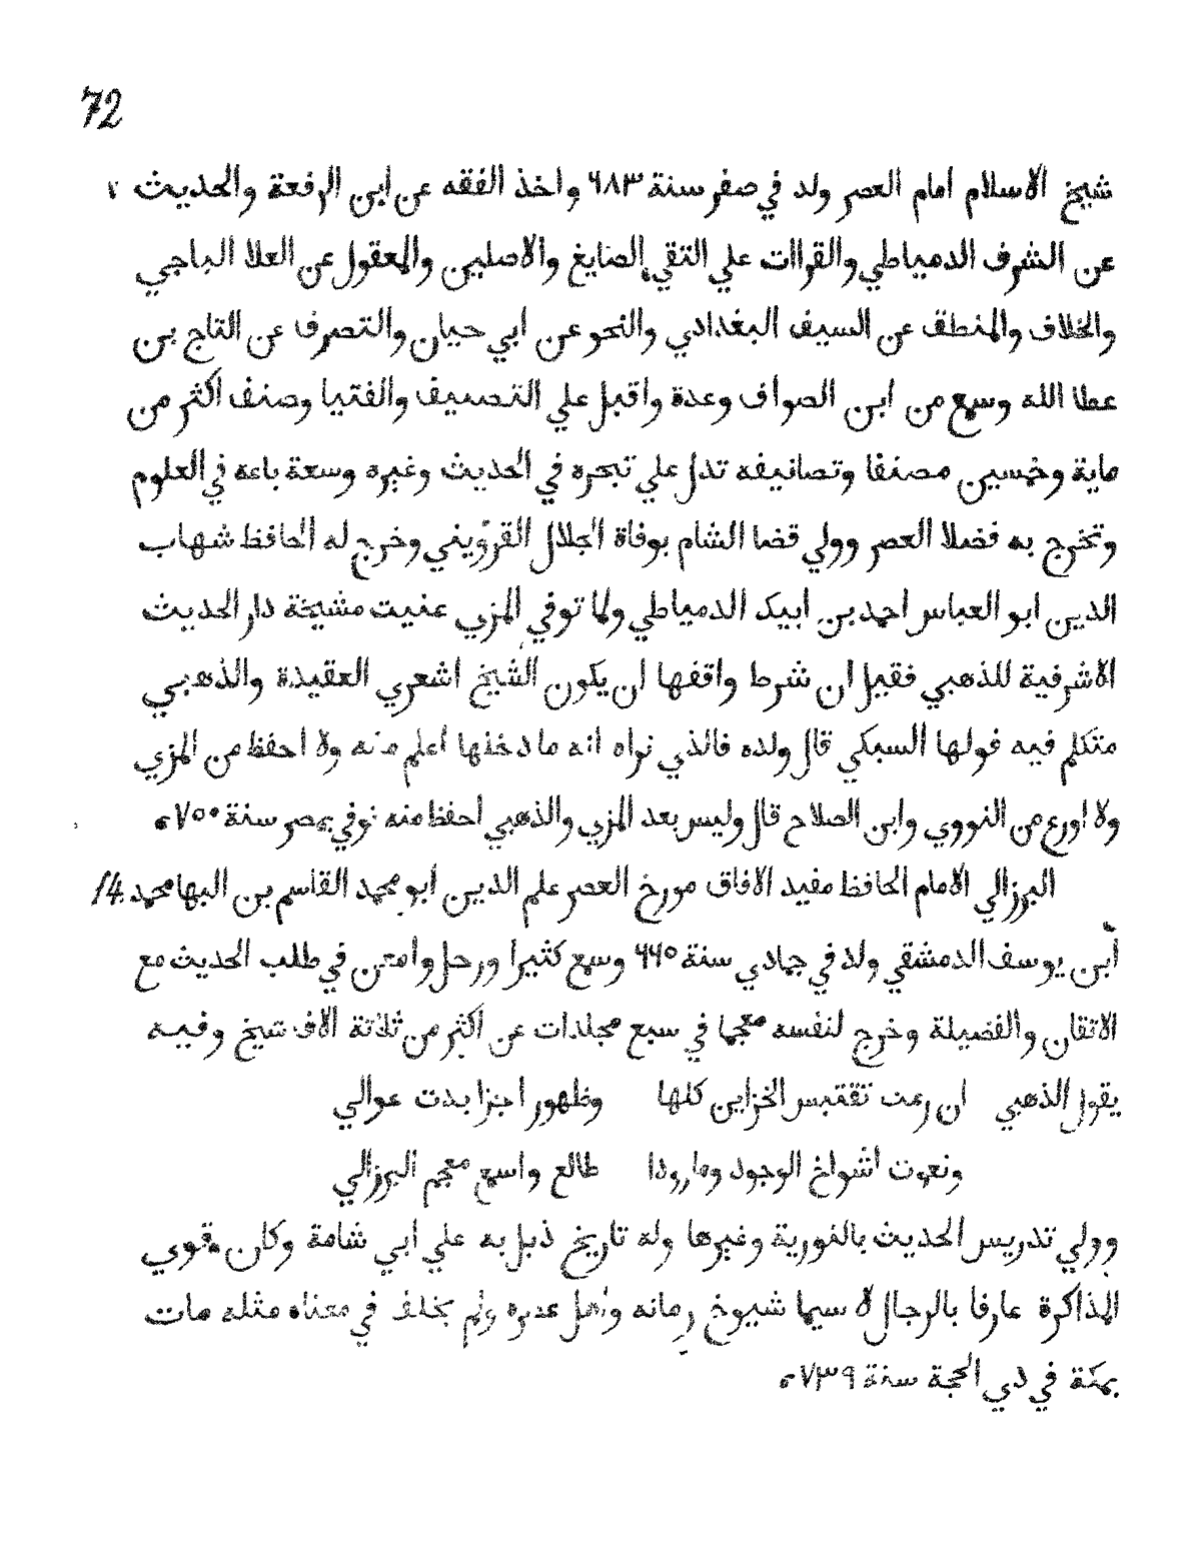 72
شيخ الاسلام امام العصر ولد في صفر سنة ٦٨٣ واخذ الفقه عن ابن الرفعة والحديث
عن الشرف الدمياطي والقراات علي التقي الصايغ والاصلين والمعقول عن العلا الباجي
والخلاف والمنطق عن السيف البغدادي والنحو عن ابي حيان والتصرف عن التاج بن
عطا الله وسمع من ابن الصواف وعدة واقبل علي التصنيف والفتيا وصنف اكثر من
ماية وخمسين مصنفا وتصانيفه تدل علي تبحره في الحديث وغيره وسعة باعه في العلوم
وتخرج به فضلا العصر وولي قضا الشام بوفاة الجلال القزويني وخرج له الحافظ شهاب
الدين ابو العباس احمد بن ابيك الدمياطي ولما توفي المزي عنيت مشيخة دار الحديث
الاشرفية للذهبي فقيل ان شرط واقفها ان يكون الشيخ اشعري العقيدة والذهبي
متكلم فيه فولها السبكي قال ولده فالذي نراه انه ما دخلها اعلم منه ولا احفظ من المزي
ولا اورع من النووي وابن الصلاح قال وليس بعد المزي والذهبي احفظ منه توفي بمصر سنة ٧٥٠
البرزالي الامام الحافظ مفيد الافاق مورخ العصر علم الدين ابو محمد القاسم بن البها محمد 14.
ابن يوسف الدمشقي ولد في جمادي سنة ٦٦٥ وسمع كثيرا ورحل وامعن في طلب الحديث مع
الاتقان والفضيلة وخرج لنفسه معجما في سبع مجلدات عن اكثر من ثلاثة الاف شيخ وفيه
يقول الذهبي ان رمت تقتبس الخزاين كلها وظهور اجزا بدت عوالي
ونعوت اشواخ الوجود وما رودا طالع واسمع معجم البرزالي
وولي تدريس الحديث بالنورية وغيرها وله تاريخ ذيل به علي ابي شامة وكان قوي
المذاكرة عارفا بالرجال لا سيما شيوخ زمانه واهل عصره ولم يخلف في معناه مثله مات
بمكة في دي الحجة سنة ٧٣٩